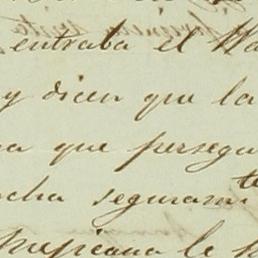 entraba el
y dicen que la
que persegu
seguramte
Mejicana le